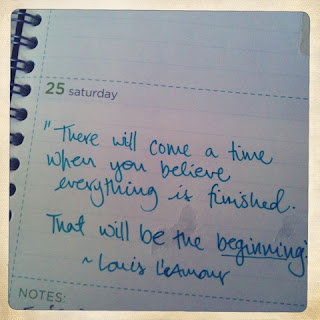 25 saturday
"There will come a time
when you believe
everything is finished.
That will be the beginning."
~Louis L'Amour
NOTES: